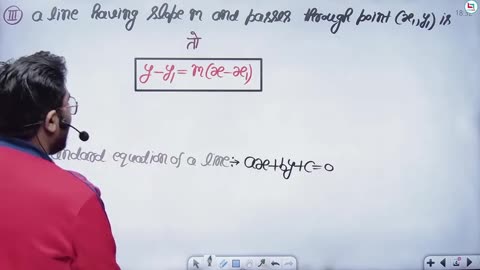 III a line having slope m and passes through point (x₁, y₁) is
तो
y-y₁=m(x-x₁)
standard equation of a line:→ ax+by+c=0